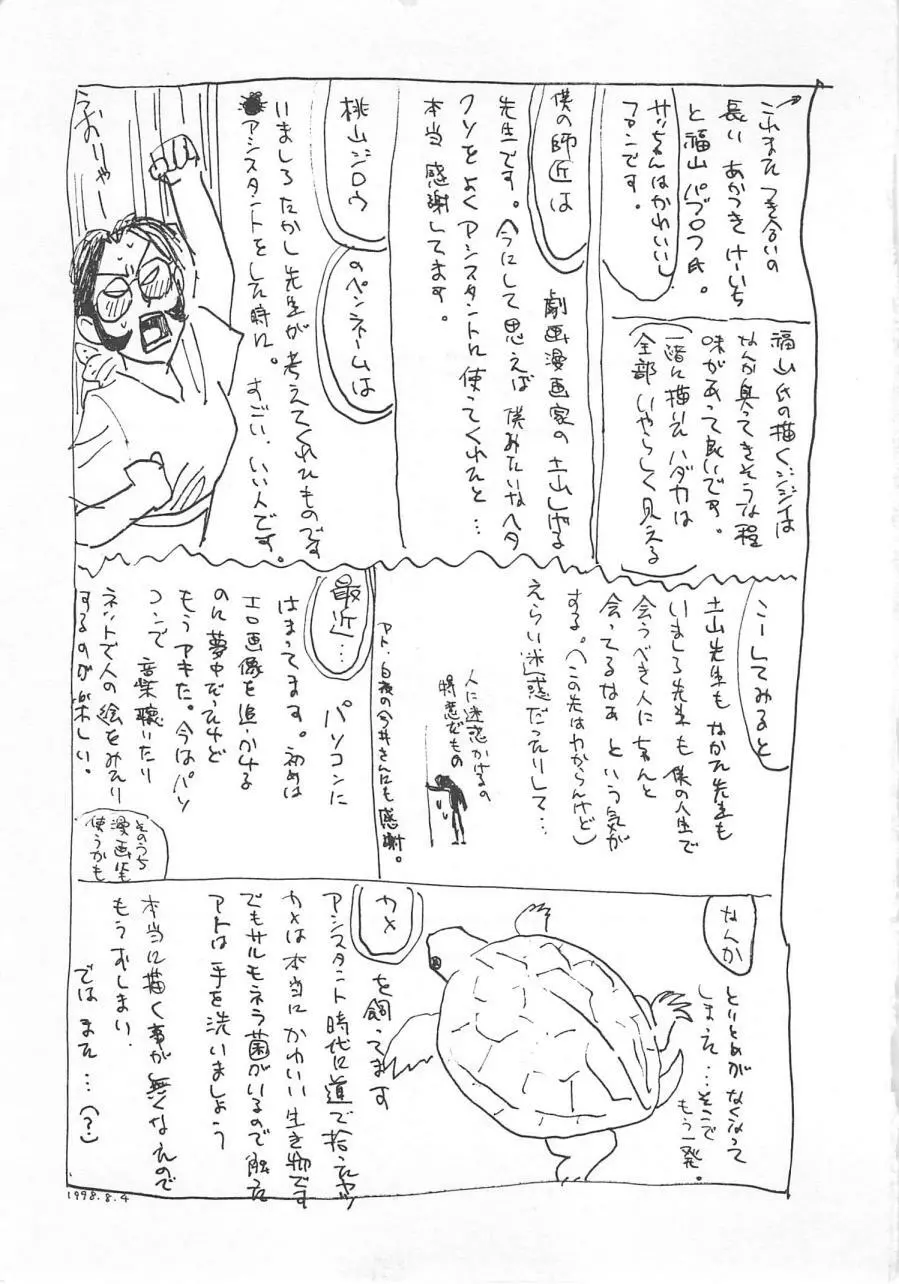 これまたつき合いの
長い あかつきけーいち
と福山パブロフ氏。
サッちんはかわいい
ファンです。
福山氏の描くジジイは
なんか臭ってきそうな程
味があって良いです。
一緒に描いたハダカは
全部いやらしく見える
僕の師匠は
劇画漫画家の土山しげる
先生です。今にして思えば僕みたいなヘタ
クソをよくアシスタントに使ってくれたと…
本当感謝してます。
桃山ジロウ
のペンネームは
いましろたかし先生が考えてくれたものです
アシスタントをした時に。すごい、いい人です。
うおりゃー
こーしてみると
土山先生もなかた先生も
いましろ先生も僕の人生で
会うべき人にちゃんと
会ってるなぁという気が
する。(この先はわからんけど)
えらい迷惑だったりして…
人に迷惑かけるの
得意だもの
アト、白夜の今井さんにも感謝。
最近…
パソコンに
はまってます。初めは
エロ画像を追いかける
のに夢中だったけど
もうアキた。今はパソ
コンで音楽聴いたり
ネットで人の絵をみたり
するのが楽しい。
そのうち
漫画にも
使うかも
なんか
とりとめがなくなって
しまった…そこで
もう一発。
カメ
を飼ってます
アシスタント時代に道で拾ったヤツ
カメは本当にかわいい生き物です
でもサルモネラ菌がいるので触った
アトは手を洗いましょう
本当に描く事が無くなったので
もうおしまい
では また…(?)
1998.8.4